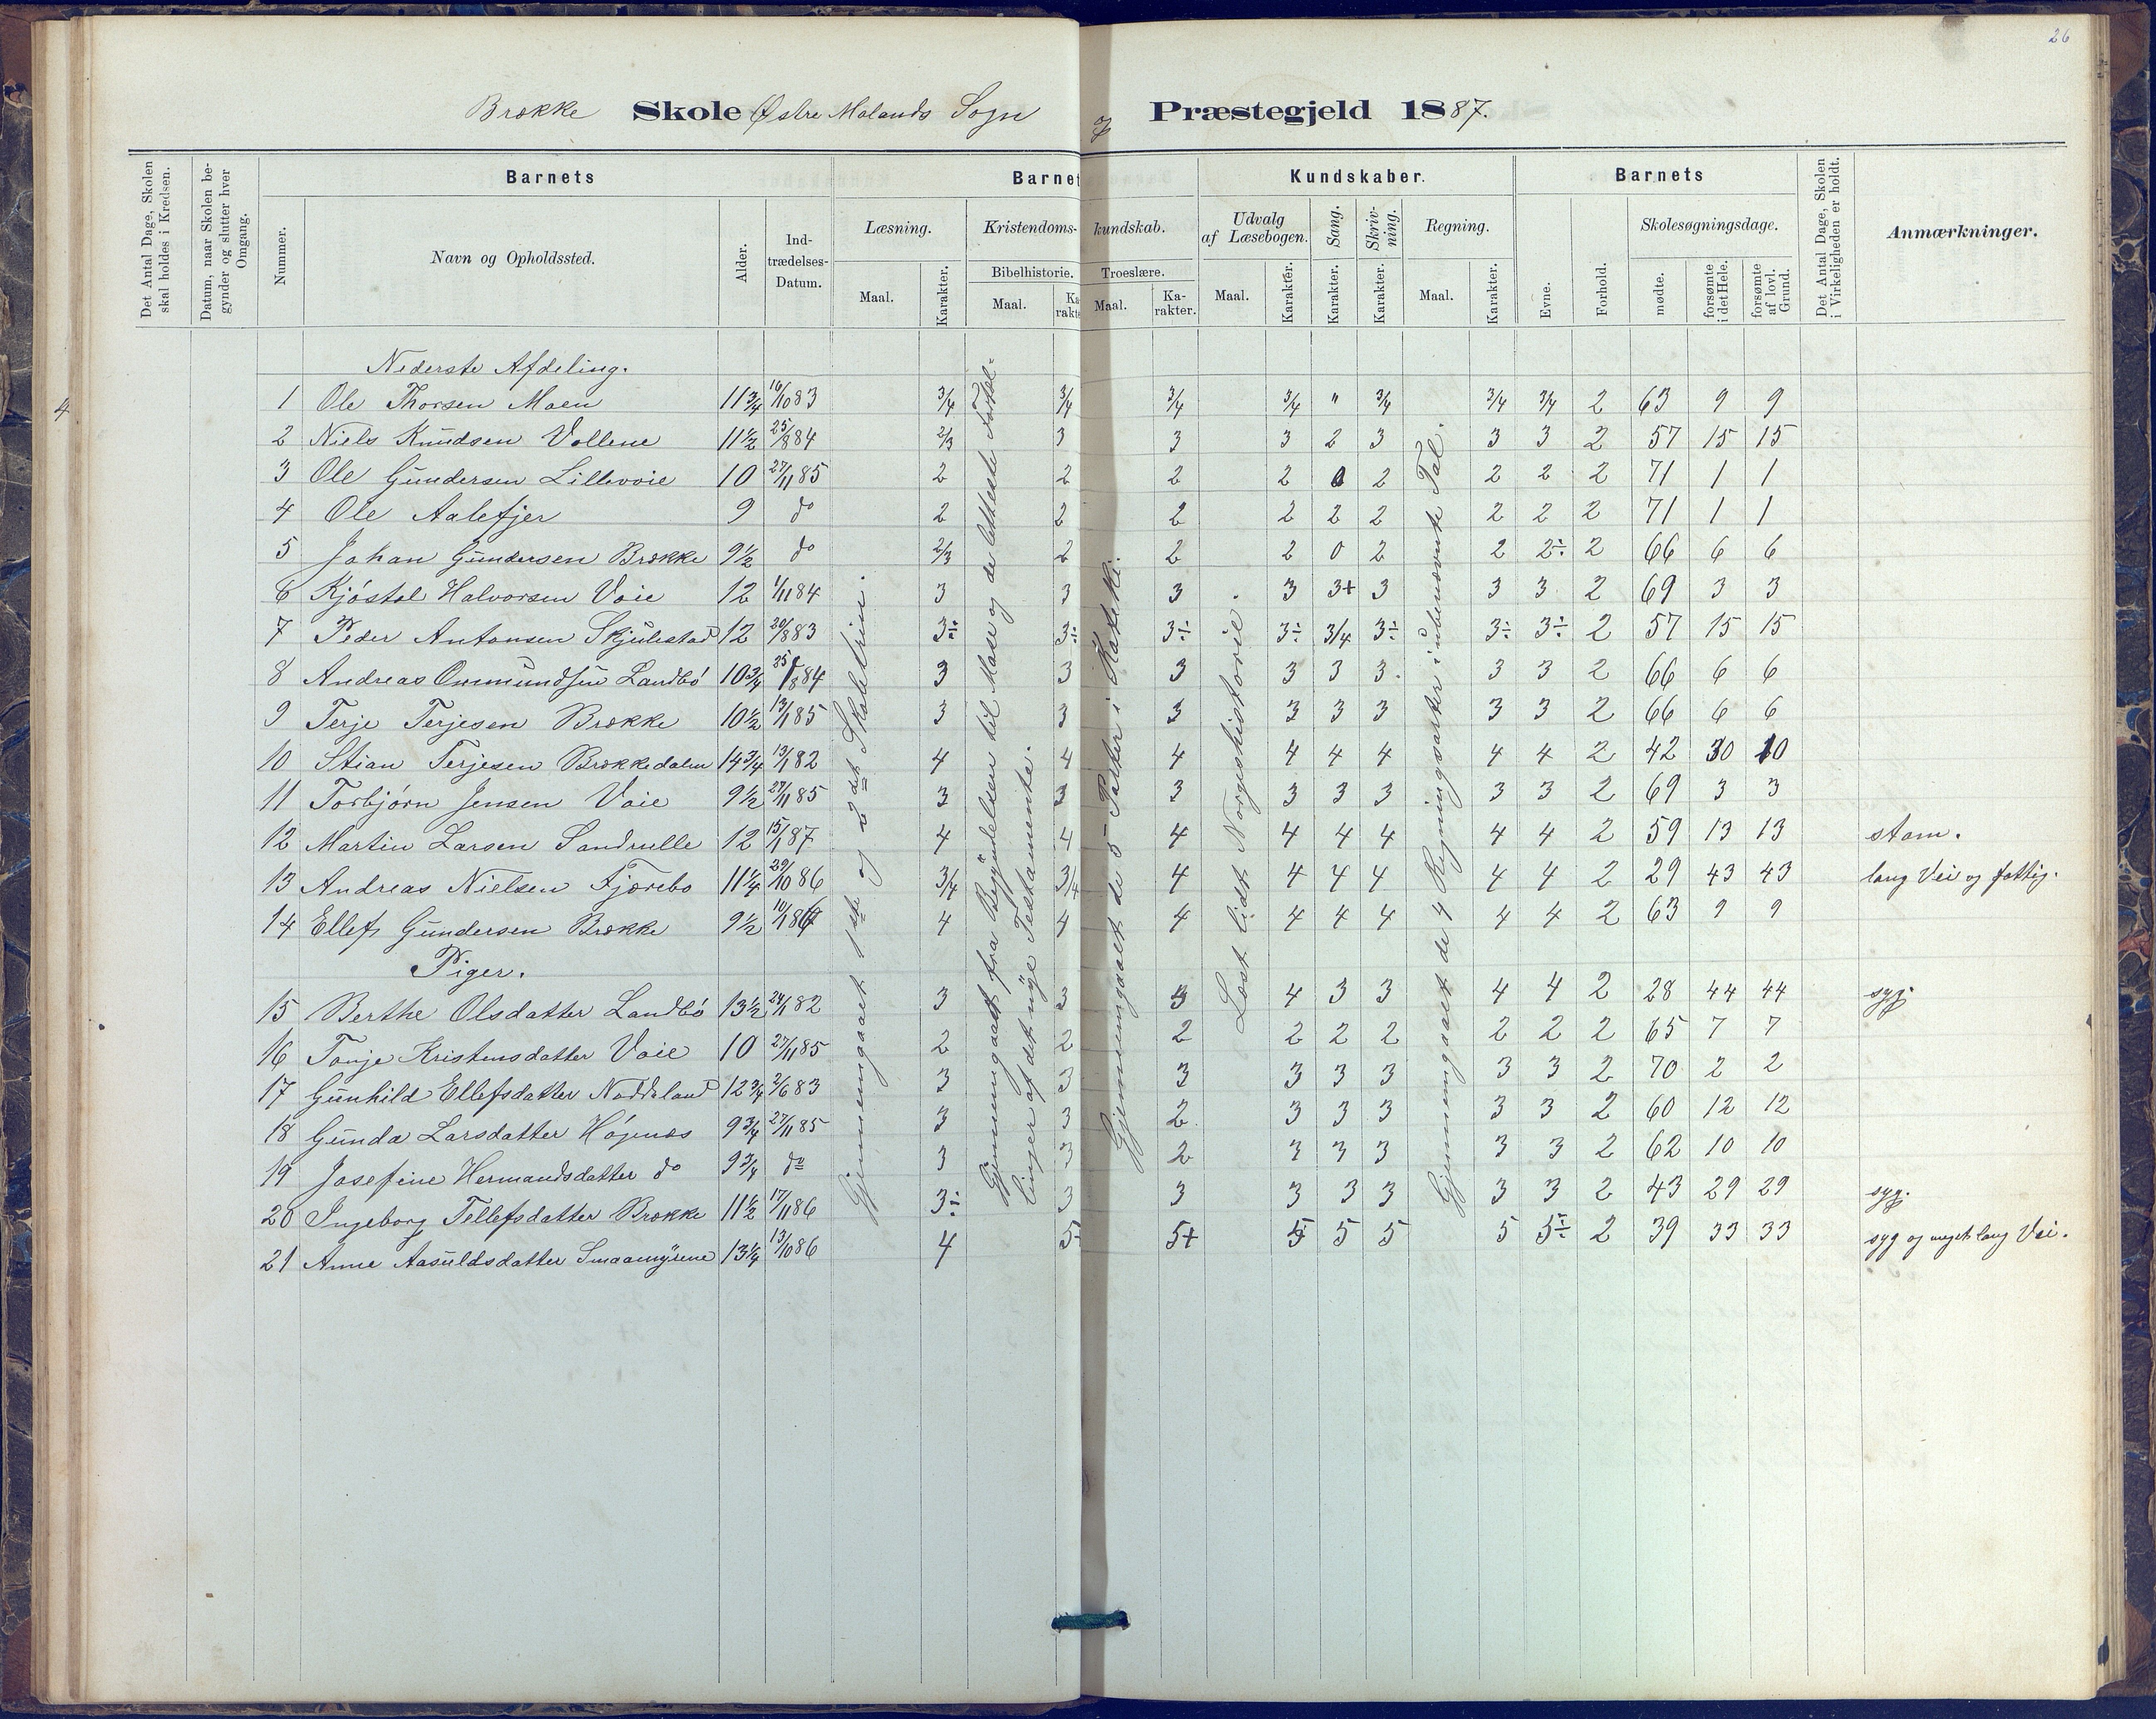 26
Brække Skole Østre Molands Sogn Præstegjeld 1887.
Det Antal Dage, Skolen skal holdes i Kredsen.
Datum, naar Skolen begynder og slutter hver Omgang.
Barnets
Nummer.
Navn og Opholdssted.
Alder.
Indtrædelses-Datum.
Barnets Kundskaber.
Læsning.
Maal.
Karakter.
Kristendomskundskab.
Bibelhistorie.
Maal.
Karakter.
Troeslære.
Maal.
Karakter.
Udvalg af Læsebogen.
Maal.
Karakter.
Sang.
Karakter.
Skrivning.
Karakter.
Regning.
Maal.
Karakter.
Barnets
Evne.
Forhold.
Skolesøgningsdage.
mødte.
forsømte i det Hele.
forsømte af lovl. Grund.
Det Antal Dage, Skolen i Virkeligheden er holdt.
Anmærkninger.
Nederste Afdeling.
1 Ole Thorsen Moen 11 3/4 16/10 83 3/4 3/4 3/4 3/4 " 3/4 3/4 3/4 2 63 9 9
2 Niels Knudsen Vollene 11 1/2 25/8 84 2/3 3 3 3 2 3 3 3 2 57 15 15
3 Ole Gundersen Lillevoie 10 27/11 85 2 2 2 2 0 2 2 2 2 71 1 1
4 Ole Aalefjer 9 do 2 2 2 2 2 2 2 2 2 71 1 1
5 Johan Gundersen Brække 9 1/2 do 2/3 2 2 2 0 2 2 2÷ 2 66 6 6
6 Kjøstol Halvorsen Voie 12 1/11 84 3 3 3 3 3+ 3 3 3 2 69 3 3
7 Peder Antonsen Skjulestad 12 20/8 83 3÷ 3÷ 3÷ 3÷ 3/4 3÷ 3÷ 3÷ 2 57 15 15
8 Andreas Ommundsen Landbö 10 3/4 25/8 84 3 3 3 3 3 3. 3 3 2 66 6 6
9 Terje Terjesen Brække 10 1/2 13/1 85 3 3 3 3 3 3 3 3 2 66 6 6
10 Stian Terjesen Brækkedalen 14 3/4 13/1 82 4 4 4 4 4 4 4 4 2 42 30 10
11 Torbjørn Jensen Voie 9 1/2 27/11 85 3 3 3 3 3 3 3 3 2 69 3 3
12 Martin Larsen Sandrulle 12 15/1 87 4 4 4 4 4 4 4 4 2 59 13 13 stam.
13 Andreas Nielsen Fjærebo 11 1/4 29/10 86 3/4 3/4 4 4 4 4 4 4 2 29 43 43 lang Vei og fattig.
14 Ellef Gundersen Brække 9 1/2 10/1 86 4 4 4 4 4 4 4 4 2 63 9 9
Piger.
15 Berthe Olsdatter Landbö 13 1/2 24/1 82 3 3 3 4 3 3 4 4 2 28 44 44 syg.
16 Tonje Kristensdatter Voie 10 27/11 85 2 2 2 2 2 2 2 2 2 65 7 7
17 Gunhild Ellefsdatter Noddeland 12 3/4 2/6 83 3 3 3 3 3 3 3 3 2 70 2 2
18 Gunda Larsdatter Højenæs 9 3/4 27/11 85 3 3 2 3 3 3 3 3 2 60 12 12
19 Josefine Hermandsdatter do 9 3/4 do 3 3 2 3 3 3 3 3 2 62 10 10
20 Ingeborg Tellefsdatter Brække 11 1/2 17/11 86 3÷ 3 3 3 3 3 3 3 2 43 29 29 syg.
21 Anne Aasuldsdatter Smaamyrene 13 1/4 13/10 86 4 5+ 5+ 5 5 5 5 5÷ 2 39 33 33 syg og meget lang Vei.
Gjennemgaaet 1ste og 2det Skoletrin.
Gjennemgaaet fra Begyndelsen til Mose og de letteste Fortællinger af det nye Testamente.
Gjennemgaaet de 5 Parter i Kateki.
Læst lidt Norgeshistorie.
Gjennemgaaet de 4 Regningsarter i ubenævnte Tal.
4